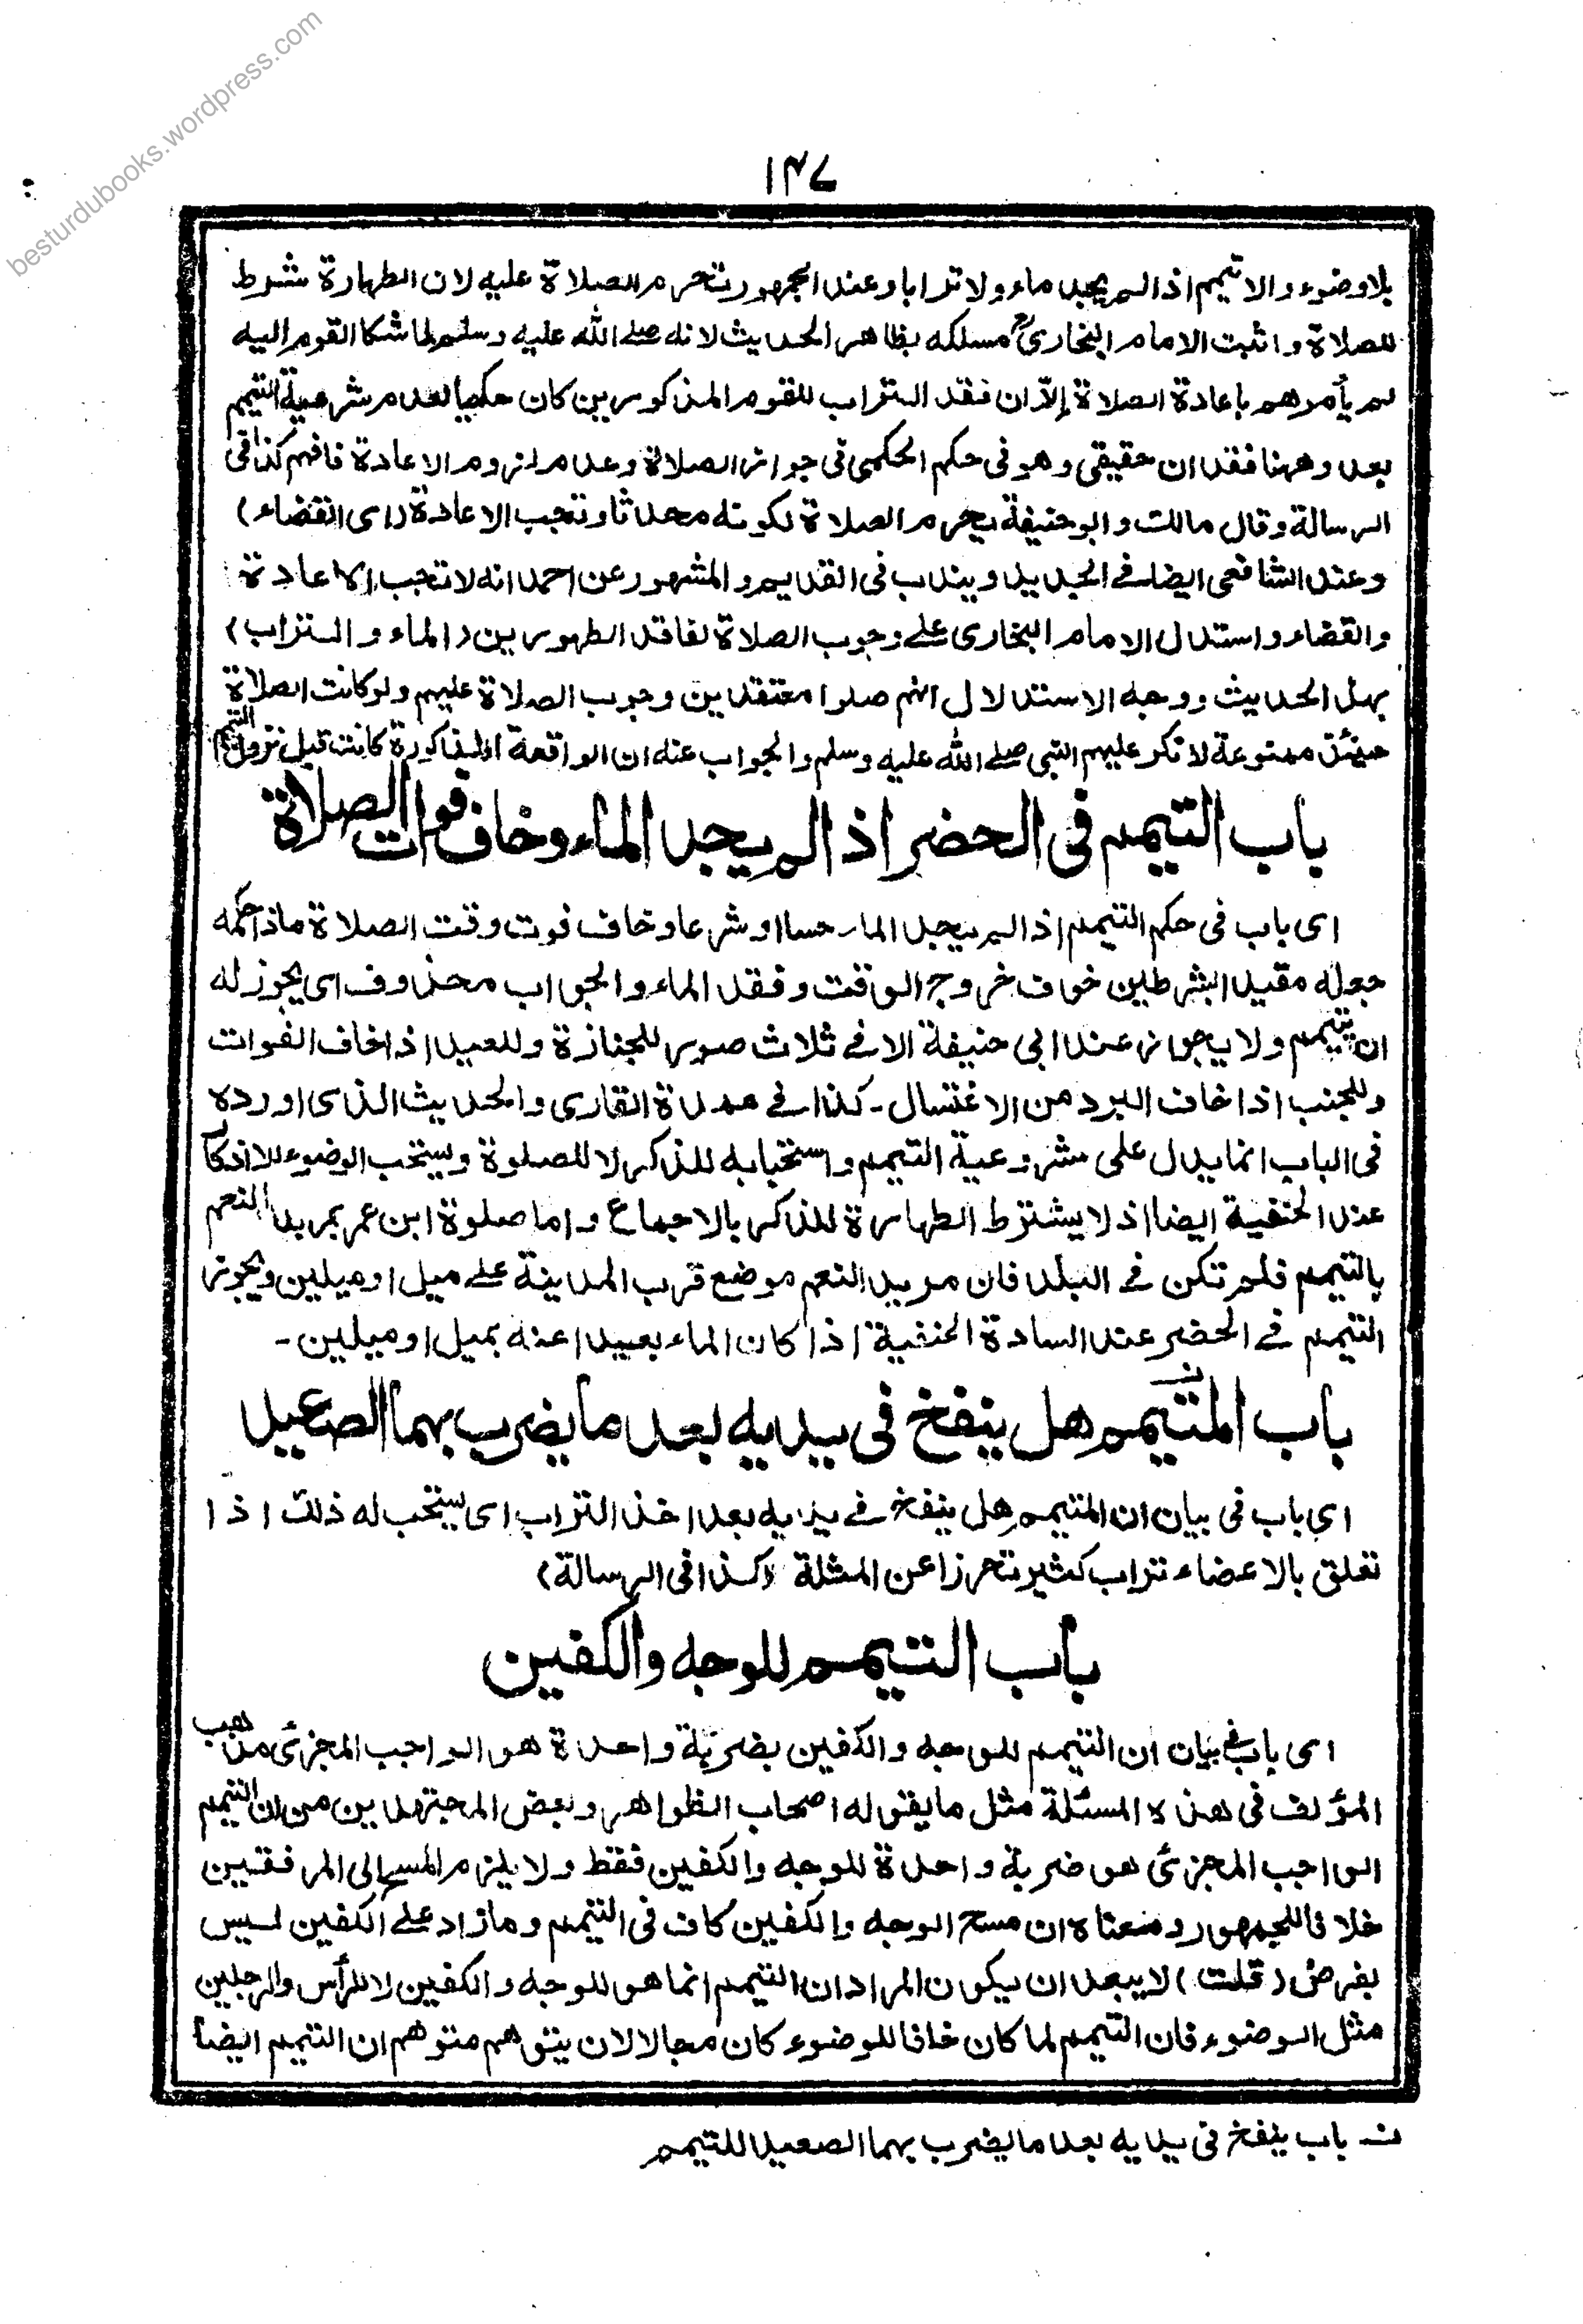 besturdubooks.wordpress.com
۱۴۷
بلا وضوء والا تيمم اذا لم يجد ماء ولا ترابا وعند الجمهور تحرم الصلاة عليه لان الطهارة شرط
للصلاة واثبت الامام البخاري رح مسلكه بظاهر الحديث لانه صلے الله عليه وسلم لما شكا القوم اليه
لم يأمرهم باعادة الصلاة إلا ان فقد التراب للقوم المذكورين كان حكميا لعدم مشرعية التيمم
بعد وههنا فقدان حقيقي وهو في حكم الحكمي في جواز الصلاة وعدم لزوم الاعادة فافهم كذا في
الرسالة وقال مالك وابو حنيفة يحرم الصلاة لكونه محدثا وتجب الاعادة (اى القضاء)
وعند الشافعي ايضا في الجديد ويندب في القديم والمشهور عن احمد انه لا تجب الاعادة
والقضاء واستدل الامام البخاري علے وجوب الصلاة لفاقد الطهورين (الماء والتراب)
بهذا الحديث ووجه الاستدلال انهم صلوا معتقدين وجوب الصلاة عليهم ولو كانت الصلاة
حينئذ ممنوعة لانكر عليهم النبي صلے الله عليه وسلم والجواب عنه ان الواقعة المذكورة كانت قبل نزول التيمم
باب التيمم في الحضر اذا لم يجد الماء وخاف فوات الصلاة
اى باب في حكم التيمم اذا لم يجد الماء حسا او شرعا وخاف فوت وقت الصلاة ماذا حكمه
جعله مقيدا بشرطين خوف خروج الوقت وفقد الماء والجواب محذوف اى يجوز له
ان يتيمم ولا يجوز عند ابي حنيفة الا في ثلاث صور للجنازة وللعيد اذا خاف الفوات
وللجنب اذا خاف البرد من الاغتسال - كذا في عمدة القاري والحديث الذي اورده
في الباب انما يدل على مشروعية التيمم واستحبابه للذكر لا للصلوة ويستحب الوضوء للاذكار
عند الحنفية ايضا اذ لا يشترط الطهارة للذكر بالاجماع واما صلوة ابن عمر بمربد النعم
بالتيمم فلم تكن في البلد فان مربد النعم موضع قرب المدينة علے ميل او ميلين ويجوز
التيمم في الحضر عند السادة الحنفية اذا كان الماء بعيدا عنه بميل او ميلين -
باب المتيمم هل ينفخ في يديه بعد ما يضرب بهما الصعيد
اى باب في بيان ان المتيمم هل ينفخ في يديه بعد اخذ التراب اى يستحب له ذلك اذا
تعلق بالاعضاء تراب كثير تحرزا عن المثلة (كذا في الرسالة)
باب التيمم للوجه والكفين
اى باب في بيان ان التيمم للوجه والكفين بضربة واحدة هو الواجب المجزئ مذهب
المؤلف في هذه المسئلة مثل ما يقوله اصحاب الظواهر وبعض المجتهدين من ان التيمم
الواجب المجزئ هو ضربة واحدة للوجه والكفين فقط ولا يلزم المسح الى المرفقين
خلافا للجمهور ومعناه ان مسح الوجه والكفين كاف في التيمم وما زاد علے الكفين ليس
بفرض (قلت) لا يبعد ان يكون المراد ان التيمم انما هو للوجه والكفين لا للرأس والرجلين
مثل الوضوء فان التيمم لما كان خلفا للوضوء كان مجالا لان يتوهم متوهم ان التيمم ايضا
ن باب ينفخ في يديه بعد ما يضرب بهما الصعيد للتيمم